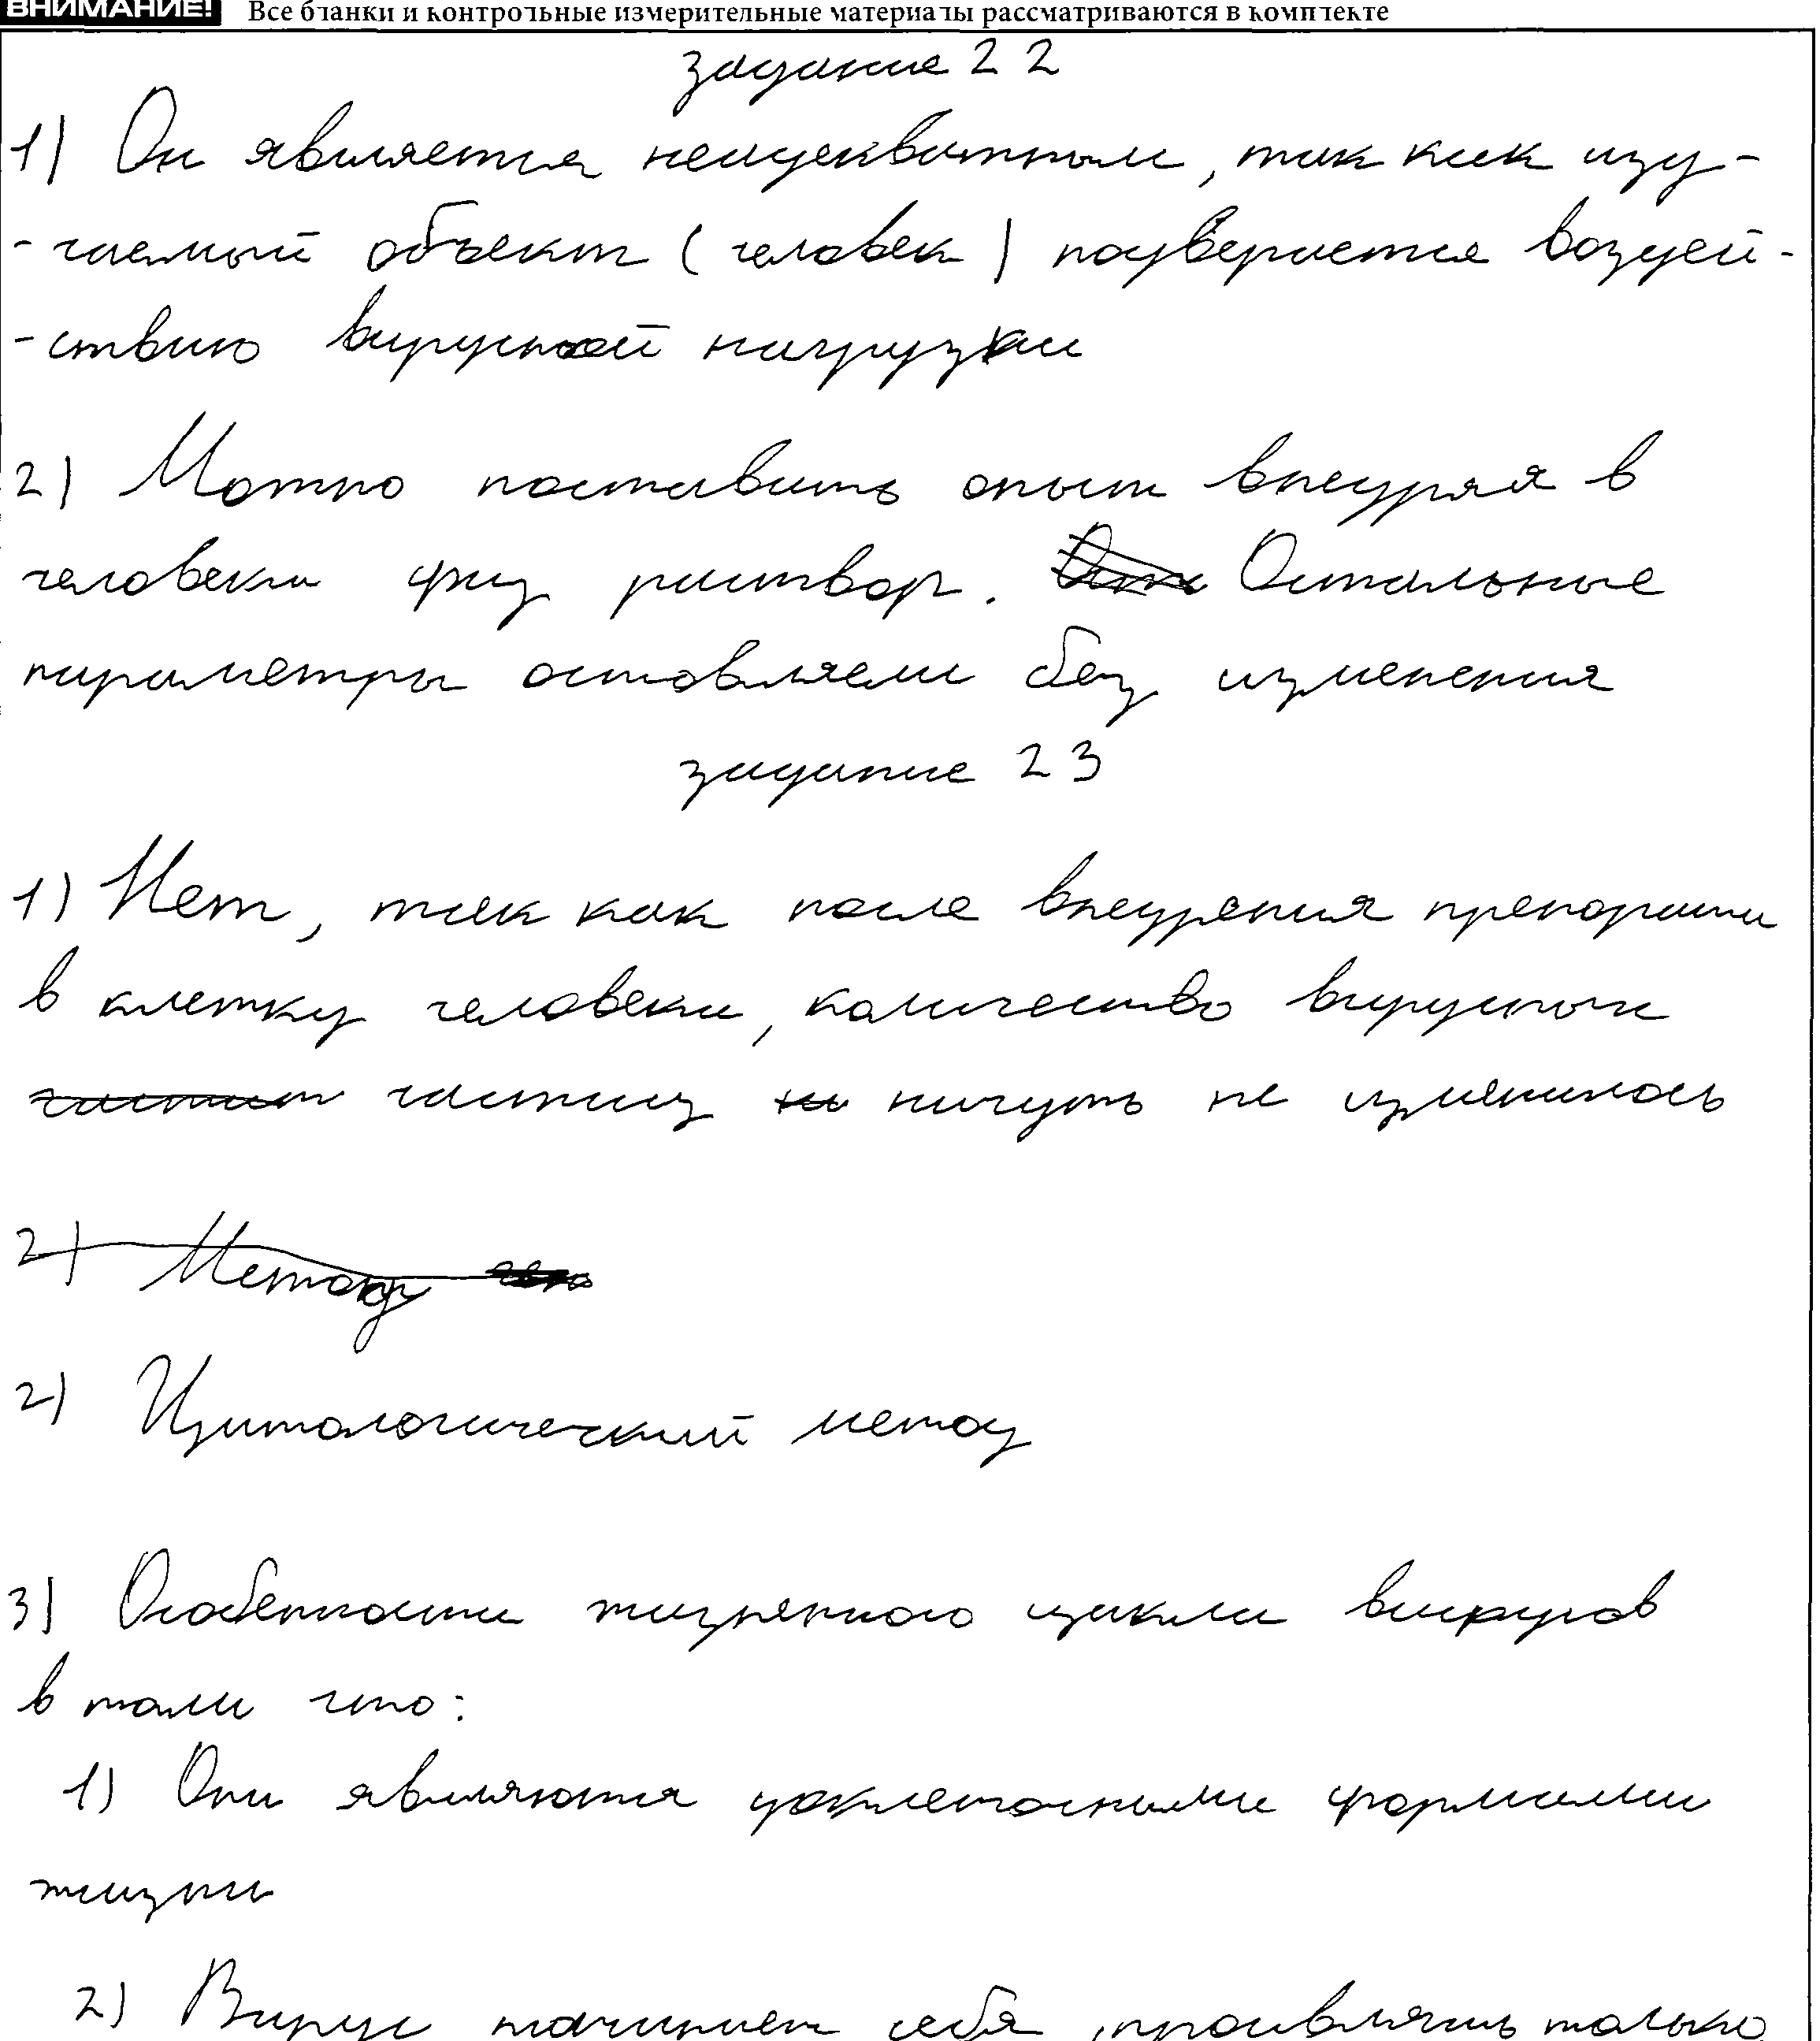 ВНИМАНИЕ! Все бланки и контрольные измерительные материалы рассматриваются в комплекте
задание 22
1) Он является неадекватным, так как изу-
-чаемый объект (человек) подвергается воздей-
-ствию вирусной нагрузки
2) Можно поставить опыт внедряя в
человека физ раствор. Остальные
параметры оставляем без изменения
задание 23
1) Нет, так как после внедрения препарата
в клетку человека, количество вирусных
частиц ничуть не изменилось
2) Метод
2) Цитологический метод
3) Особенности жизненного цикла вирусов
в том что:
1) Они являются доклеточными формами
жизни
2) Вирус начинает себя проявлять только